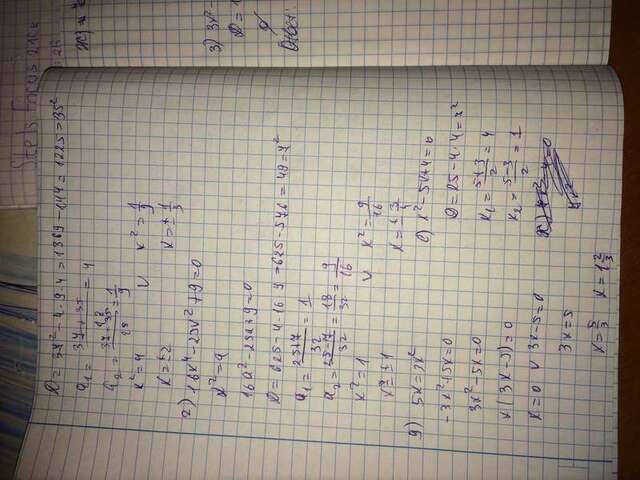 D = 37² - 4 · 9 · 4 = 1369 - 144 = 1225 = 35²
a₁ = (37 + 35) / = 4
a₂ = (37 - 35) / = 1/9
x² = 4 V x² = 1/9
x = ±2 x = ± 1/3
2) 16x⁴ - 25x² + 9 = 0
x² = a
16a² - 25a + 9 = 0
D = 625 - 4 · 16 · 9 = 625 - 576 = 49 = 7²
a₁ = (25+7)/32 = 1
a₂ = (25-7)/32 = 18/32 = 9/16
x² = 1 V x² = 9/16
x = ±1 x = ± 3/4
g) 5x = 3x²
-3x² + 5x = 0
3x² - 5x = 0
x(3x - 5) = 0
x = 0 V 3x - 5 = 0
3x = 5
x = 5/3 x = 1 2/3
e) x² - 5x + 4 = 0
D = 25 - 4 · 4 =
x₁ = (5+3)/2 = 4
x₂ = (5-3)/2 = 1
3) 3x²
D =